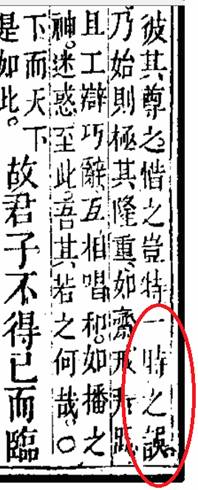 彼其尊之惜之豈特一時之誤
乃始則極其隆重如齋戒跪
且工辯巧辭互相唱和如播之
神。迷惑至此。吾其若之何哉。〇
下而天下
是如此。
故君子不得已而臨